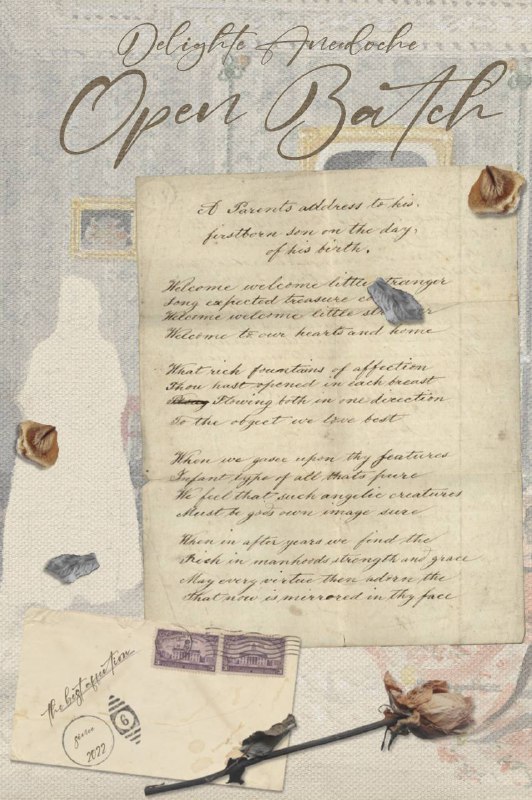 Delighte Anedoche
Open Batch
A Parents address to his
firstborn son on the day,
of his birth.
Welcome welcome little stranger
Long expected treasure
Welcome welcome little
Welcome to our hearts and home
What rich fountains of affection
Thou hast opened in each breast
Flowing both in one direction
To the object we love best
When we gaze upon thy features
Infant type of all thats pure
We feel that such angelic creatures
Must be gods own image sure
When in after years we find the
Rich in manhoods strength and grace
May every virtue then adorn the
That now is mirrored in thy face
the best
6
2022